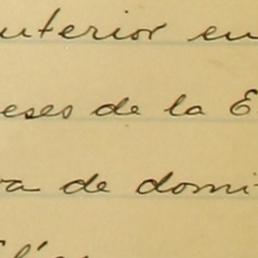 anterior en
eses de la E
va de domi